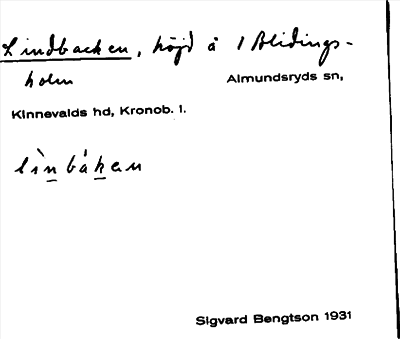 Lindbacken, höjd å 1 Blidings-
holm
Almundsryds sn,
Kinnevalds hd, Kronob. l.
lìnbákan
Sigvard Bengtson 1931